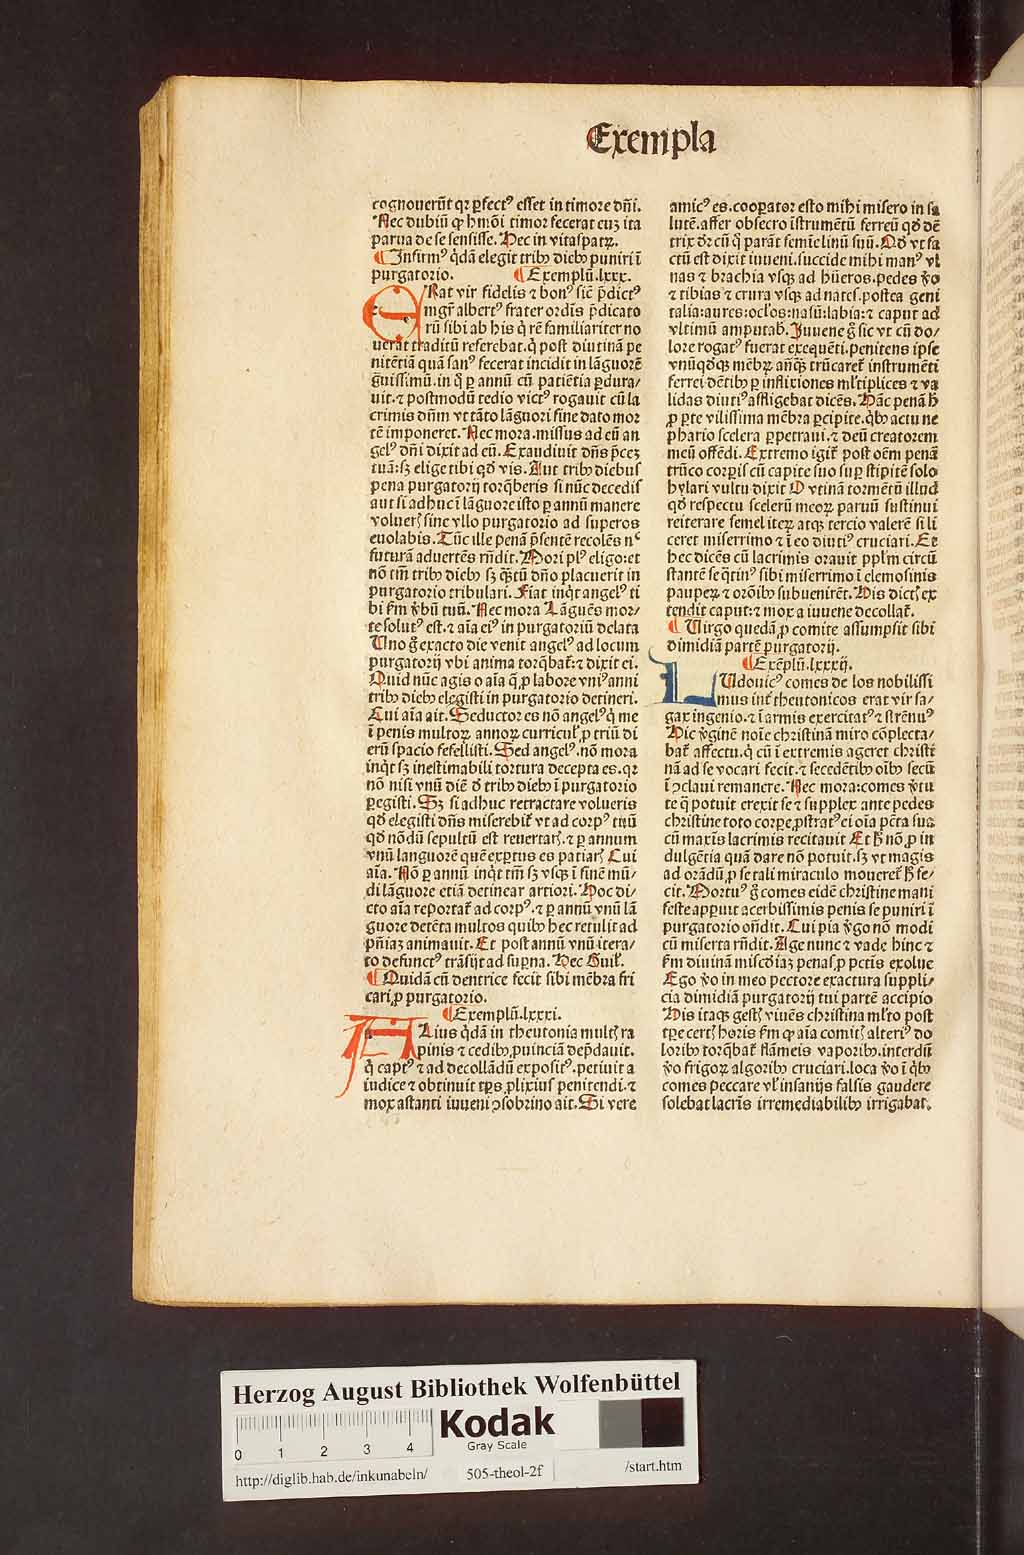 Exempla
cognouerūt qꝛ ꝑfectꝰ esset in timore dn̄i.
Nec dubiū ꝙ hmōi timor fecerat euꝫ ita
parua de se sensisse. Hec in vitaspatꝝ.
¶ Infirmꝰ q̄dā elegit tribꝰ diebꝰ puniri ī
purgatorio. ¶ Exemplū.lxxx.
ERat vir fidelis ⁊ bonꝰ sic̄ p̄dictꝰ
mgr̄ albertꝰ frater ordīs p̄dicato
rū sibi ab his q̄ rē familiariter no
uerat traditū referebat. q̄ post diutinā pe
nitētiā quā sanꝰ fecerat incidit in lāguorē
guissimū. in q̄ ꝑ annū cū patiētia ꝑdura/
uit. ⁊ postmodū tedio victꝰ rogauit cū la
crimis dn̄m vt tāto lāguori fine dato mor
tē imponeret. Nec mora. missus ad eū an
gelꝰ dn̄i dixit ad eū. Exaudiuit dn̄s p̄ceꝫ
tuā: sꝫ elige tibi qd̄ vis. Aut tribꝰ diebus
pena purgatorij torq̄beris si nūc decedis
aut si adhuc ī lāguore isto ꝑ annū manere
volueř sine vllo purgatorio ad superos
euolabis. Tūc ille penā p̄sentē recolēs nᶜ
futurā aduertēs rn̄dit. Mori plꝰ eligo: et
nō tm̄ tribꝰ diebꝰ sꝫ q̄ꝫtū dn̄o placuerit in
purgatorio tribulari. Fiat inqͥt angelꝰ ti
bi fm̄ v̄bū tuū. Nec mora Lāguēs mor/
te solutꝰ est. ⁊ aīa eiꝰ in purgatoriū delata
Uno g̊ exacto die venit angelꝰ ad locum
purgatorij vbi anima torq̄bat᷑: ⁊ dixit ei.
Quid nūc agis o aīa q̄ ꝓ labore vniꝰ anni
tribꝰ diebꝰ elegisti in purgatorio detineri.
Cui aīa ait. Seductor es nō angelꝰ q̄ me
ī penis multoꝝ annoꝝ curricul̓ ꝓ triū di
erū spacio fefellisti. Sed angelꝰ. nō mora
inqͥt sꝫ inestimabili tortura decepta es. qꝛ
nō nisi vnū diē d̓ tribꝰ diebꝰ ī purgatorio
ꝑegisti. Sꝫ si adhuc retractare volueris
qd̄ elegisti dn̄s miserebit᷑ vt ad corpꝰ tuū
qd̄ nōdū sepultū est reuertař. ⁊ ꝑ annum
vnū languorē quē exꝑtus es patiař Cui
aīa. Nō ꝑ annū inqͥt tm̄ sꝫ vsqꝫ ī finē mū/
di lāguore etiā detinear artiori. Hoc di/
cto aīa reportat᷑ ad corpꝰ. ⁊ ꝑ annū vnū lā
guore detēta multos quibꝰ hec retulit ad
pn̄iaꝫ animauit. Et post annū vnū itera/
to defunctꝰ trāsijt ad suꝑna. Hec Guil̓.
¶ Quidā cū dentrice fecit sibi mēbra fri
cari ꝓ purgatorio.
¶ Exemplū.lxxxi.
ALius q̄dā in theutonia multꝭ ra
pinis ⁊ cedibꝰ ꝓuinciā dep̄dauit.
q̄ captꝰ ⁊ ad decollādū expositꝰ. petiuit a
iudice ⁊ obtinuit tp̄s ꝓlixius penitendi. ⁊
mox astanti iuueni ↄsobrino ait. Si vere
amicꝰ es. cooꝑator esto mihi misero in sa
lutē. affer obsecro īstrumētū ferreū qd̄ dē
trix dr̄ cū q̄ parāt femīe linū suū. Qd̄ vt fa
ctū est dixit iuueni. succide mihi manꝰ vl̓
nas ⁊ brachia vsqꝫ ad hūeros. pedes v̓o
⁊ tibias ⁊ crura vsqꝫ ad nates. postea geni
talia: aures: ocl̓os: nasū: labia: ⁊ caput ad
vltimū amputab̓. Iuuene g̊ sic vt cū do/
lore rogatꝰ fuerat exequēti. penitens ipse
vnūqd̓qꝫ mēbꝝ anq̄ꝫ trūcaret᷑ instrumēti
ferrei dētibꝰ ꝑ inflixiones ml̓tiplices ⁊ va
lidas diutiꝰ affligebat dicēs. Hāc penā h̄
ꝓ ꝑte vilissima mēbra ꝑcipite. q̄bꝰ actu ne
phario scelera ꝑpetraui. ⁊ deū creatorem
meū offēdi. Extremo igit᷑ post oēm penā
trūco corꝑis cū capite suo suꝑ stipitē solo
hylari vultu dixit O vtinā tormētū illud
qd̄ respectu scelerū meoꝝ paruū sustinui
reiterare semel iteꝝ atqꝫ tercio valerē si li
ceret miserrimo ⁊ ī eo diutiꝰ cruciari. Et
hec dicēs cū lacrimis orauit ppl̓m circū
stantē se q̄tinꝰ sibi miserrimo ī elemosinis
pauꝑeꝝ ⁊ orōibꝰ subuenirēt. His dictꝭ ex
tendit caput: ⁊ mox a iuuene decollat᷑.
¶ Uirgo quedā ꝓ comite assumpsit sibi
dimidiā partē purgatorij.
¶ Exēplū.lxxxij.
LUdouicꝰ comes de los nobilissi
mus int̓ theutonicos erat vir sa/
gax ingenio. ⁊ ī armis exercitatꝰ ⁊ strēnuꝰ
Hic v̓ginē noīe christinā miro cōplecta/
bat᷑ affectu. q̄ cū ī extremis ageret christi
nā ad se vocari fecit. ⁊ secedētibꝰ oībꝰ secū
ī ↄclaui remanere. Nec mora: comes v̓tu
te q̄ potuit erexit se ⁊ supplex ante pedes
christine toto corꝑe ꝓstratꝰ ei oīa pctā sua
cū maxīs lacrimis recitauit Et h̄ nō ꝓ in
dulgētia quā dare nō potuit. sꝫ vt magis
ad orādū ꝓ se tali miraculo moueret᷑ h̄ fe/
cit. Mortuꝰ g̊ comes eidē christine mani
feste apparuit acerbissimis penis se puniri ī
purgatorio oñdit. Cui pia v̓go nō modi
cū miserta rn̄dit. Age nunc ⁊ vade hinc ⁊
fm̄ diuinā misc̄diaꝫ penas ꝓ pctīs exolue
Ego v̓o in meo pectore exactura suppli/
cia dimidiā purgatorij tui partē accipio
His itaqꝫ gestꝭ viuēs christina ml̓to post
tꝑe certꝭ horis fm̄ ꝙ aīa comitꝭ alterꝰ do
loribꝰ torq̄bat᷑ flāmeis vaporibꝰ. interdū
v̓o frigoꝝ algoribꝰ cruciari. loca v̓o ī q̄bꝰ
comes peccare vl̓ insanijs falsis gaudere
solebat lacrīs irremediabilibꝰ irrigabat.
Herzog August Bibliothek Wolfenbüttel
0 1 2 3 4
Kodak
Gray Scale
http://diglib.hab.de/inkunabeln/ 505-theol-2f /start.htm